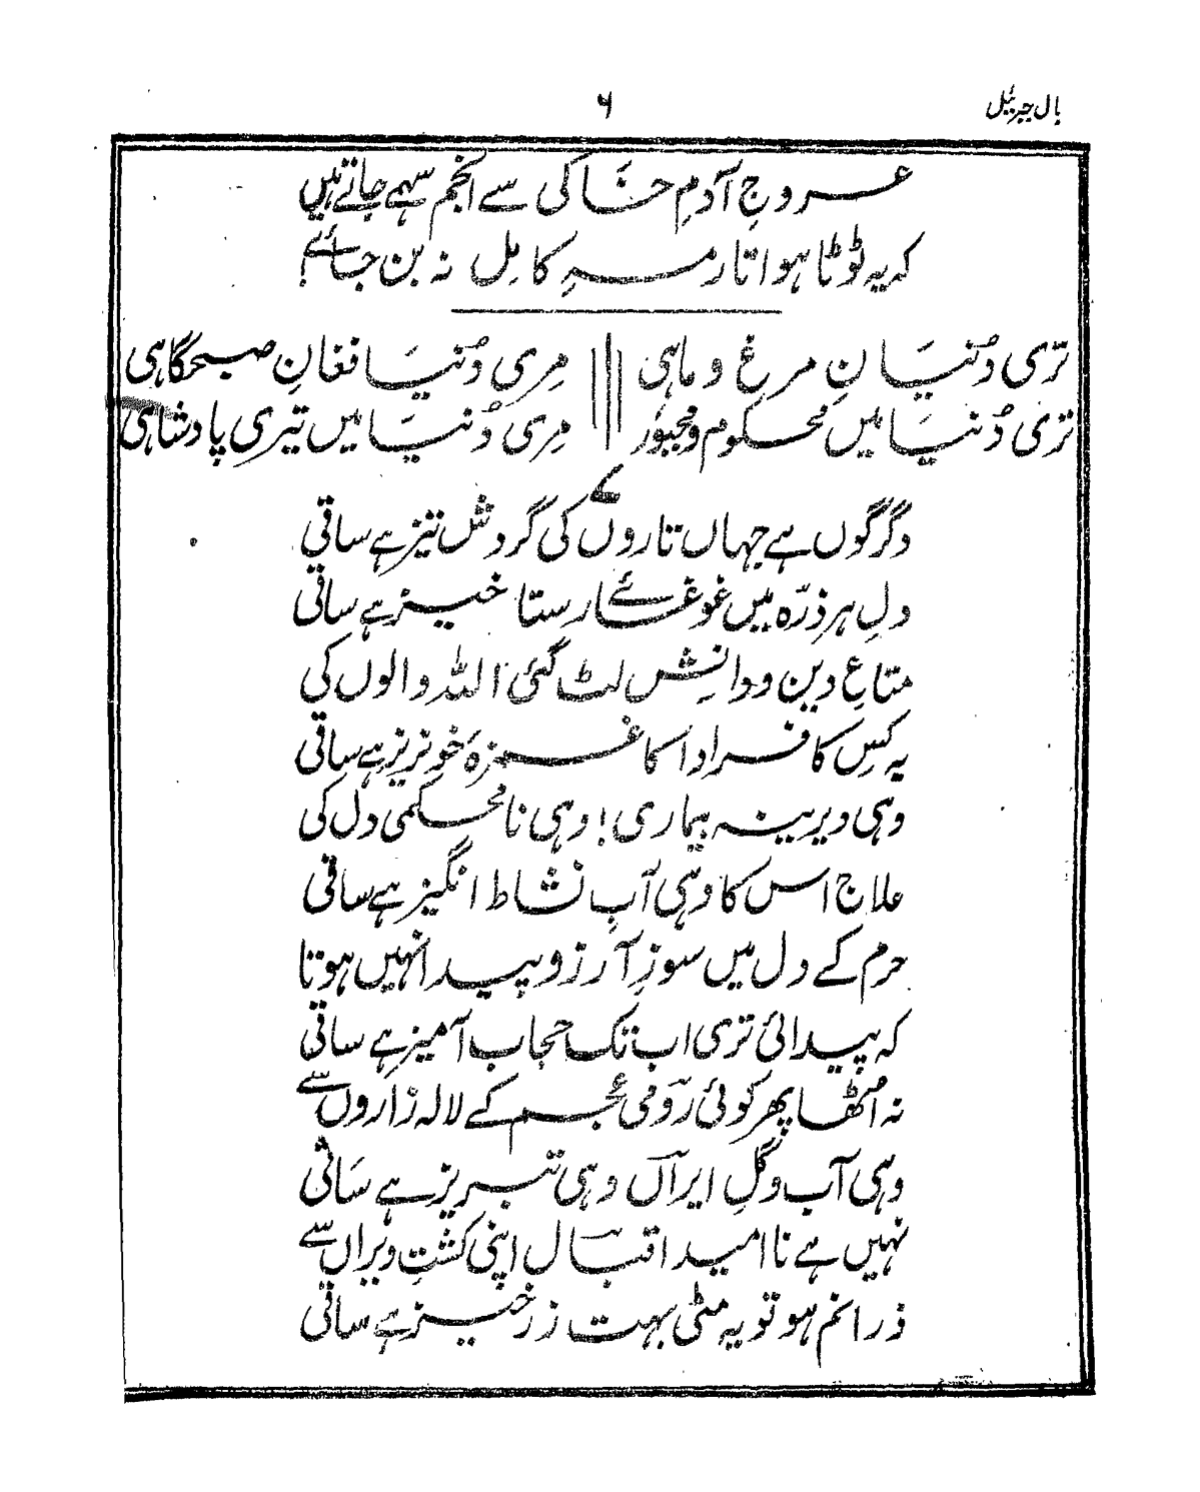 بال جبرئیل
۶
عروجِ آدمِ خَاکی سے انجم سہمے جاتے ہیں
کہ یہ ٹوٹا ہوا تارا مہِ کامِل نہ بن جائے!
تری دُنیَا نِ مرغ و ماہی مِری دُنیَا فغانِ صبحگاہی
تری دُنیَا میں محکوم و مجبور مِری دُنیَا میں تیری پادشاہی
۷
دگرگوں ہے جہاں تاروں کی گردش تیز ہے ساقی
دلِ ہر ذرّہ میں غوغائے رستا خیز ہے ساقی
متاعِ دین و دانِش لٹ گئی اللہ والوں کی
یہ کِس کافر ادا کا غمزۂ خوںریز ہے ساقی
وہی دیرینہ بیماری! وہی نا محکمی دل کی
علاج اس کا وہی آبِ نشاط انگیز ہے ساقی
حرم کے دل میں سوزِ آرزو پیدا نہیں ہوتا
کہ پیدائی تری اب تک حجاب آمیز ہے ساقی
نہ اُٹھا پھر کوئی رومی عجم کے لالہ زاروں سے
وہی آب و گلِ ایراں وہی تبریز ہے سَاقی
نہیں ہے نا امید اقبال اپنی کشتِ ویراں سے
ذرا نم ہو تو یہ مٹی بہت زرخیز ہے ساقی